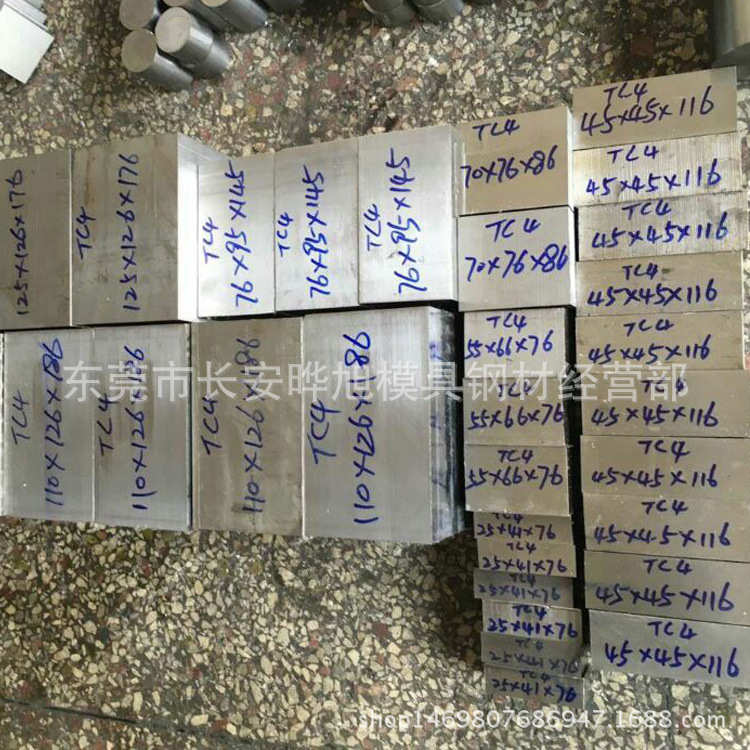 125×126×176
TC4
125×126×176
TC4
76×95×145
TC4
76×95×145
TC4
76×95×145
TC4
70×76×86
TC4
70×76×86
TC4
110×126×186
TC4
110×126×186
TC4
110×126×186
TC4
110×126×186
TC4
55×66×76
TC4
55×66×76
TC4
55×66×76
TC4
25×41×76
TC4
25×41×76
TC4
25×41×76
TC4
25×41×76
TC4
25×41×76
TC4
25×41×76
TC4
45×45×116
TC4
45×45×116
TC4
45×45×116
TC4
45×45×116
TC4
45×45×116
TC4
45×45×116
TC4
45×45×116
TC4
45×45×116
TC4
45×45×116
TC4
45×45×116
东莞市长安晔旭模具钢材经营部
shop1469807686947.1688.com